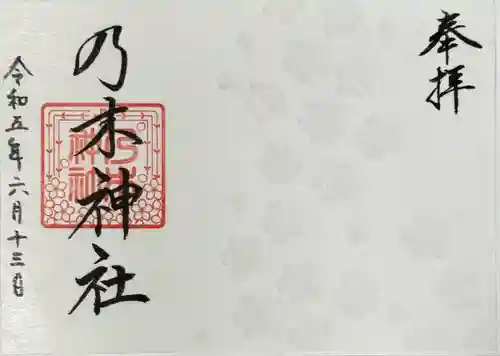 奉拝
乃木神社
令和五年六月十三日